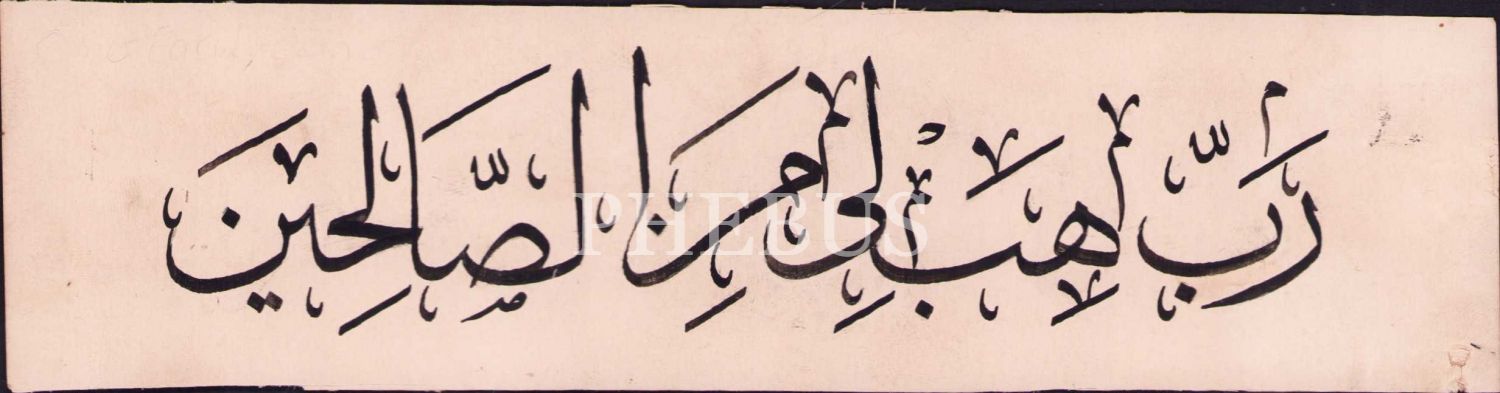 رَبِّ هَبْ لِي مِنَ الصَّالِحِينَ
PHEBUS